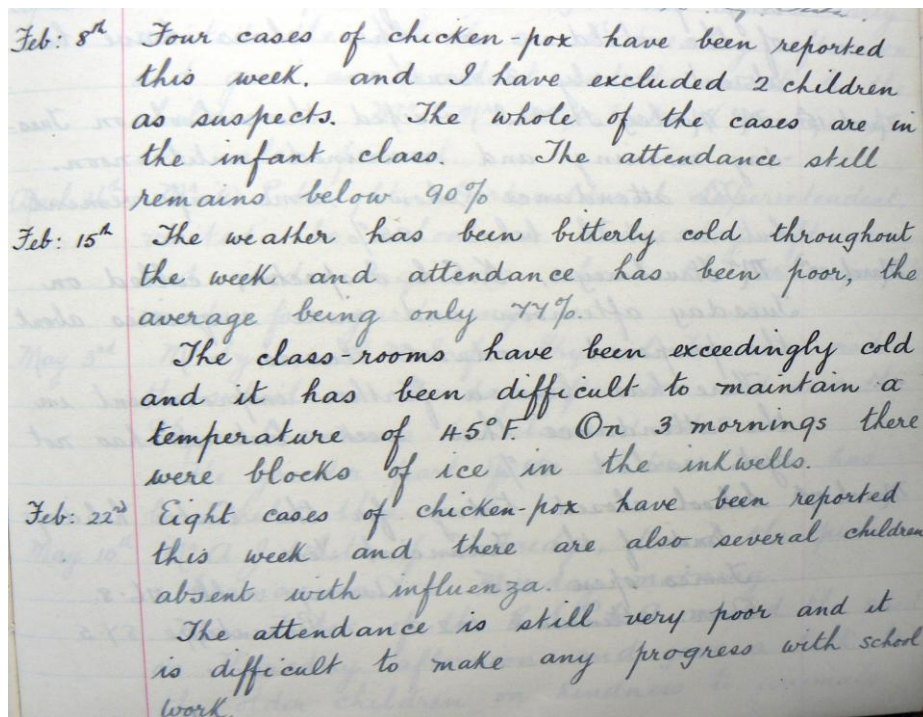 Feb: 8th Four cases of chicken-pox have been reported
this week. and I have excluded 2 children
as suspects. The whole of the cases are in
the infant class. The attendance still
remains below 90%
Feb: 15th The weather has been bitterly cold throughout
the week and attendance has been poor, the
average being only 77%.
The class-rooms have been exceedingly cold
and it has been difficult to maintain a
temperature of 45°F. On 3 mornings there
were blocks of ice in the inkwells.
Feb: 22nd Eight cases of chicken-pox have been reported
this week and there are also several children
absent with influenza.
The attendance is still very poor and it
is difficult to make any progress with school
work.